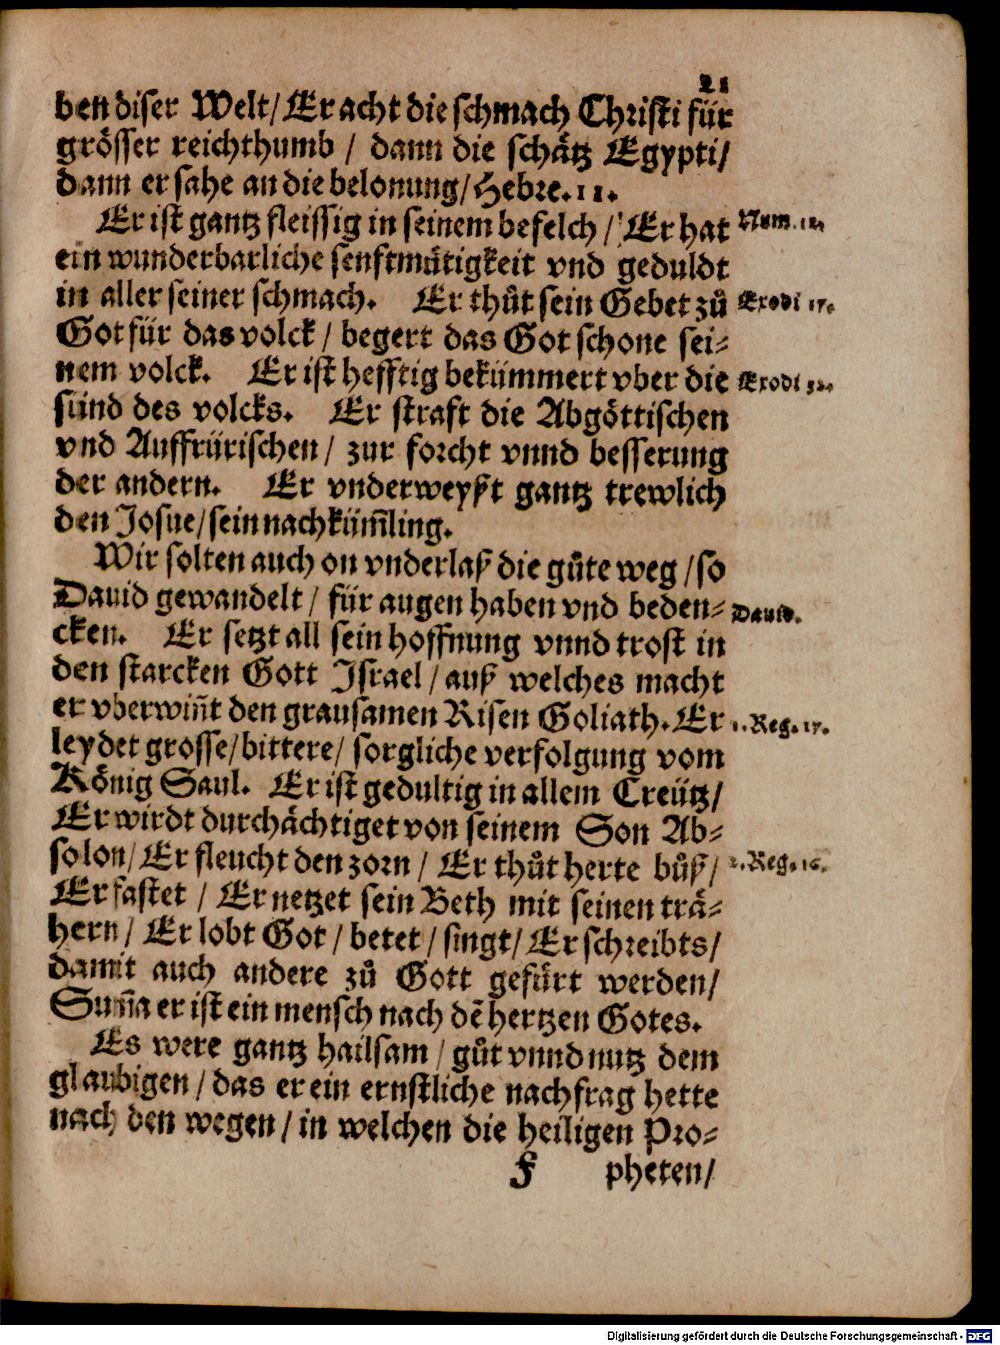 21
ben diser Welt / Er acht die schmach Christi für
grösser reichthumb / dann die schätz Egypti /
dann er sahe an die belonung / Hebre. 11.
Er ist gantz fleissig in seinem befelch / Er hat
Num. 12.
ein wunderbarliche senfftmütigkeit vnd geduldt
in aller seiner schmach. Er thůt sein Gebet zů
Exodi 17.
Got für das volck / begert das Got schone sei-
nem volck. Er ist hefftig bekümmert vber die
Exodi 32.
sünd des volcks. Er straft die Abgöttischen
vnd Auffrürischen / zur forcht vnnd besserung
der andern. Er vnderweyßt gantz trewlich
den Josue / sein nachküm̃ling.
Wir solten auch on vnderlaß die gůte weg / so
Dauid gewandelt / für augen haben vnd beden-
Dauid.
cken. Er setzt all sein hoffnung vnnd trost in
den starcken Gott Israel / auß welches macht
er vberwiñt den grausamen Risen Goliath. Er
1. Reg. 17.
leydet grosse / bittere / sorgliche verfolgung vom
König Saul. Er ist gedultig in allem Creütz /
Er wirdt durchächtiget von seinem Son Ab-
solon / Er fleucht den zorn / Er thůt herte bůß /
2. Reg. 16.
Er fastet / Er netzet sein Beth mit seinen trä-
hern / Er lobt Got / betet / singt / Er schreibts /
damit auch andere zů Gott gefürt werden /
Sum̃a er ist ein mensch nach dẽ hertzen Gotes.
Es were gantz hailsam / gůt vnnd nutz dem
glaubigen / das er ein ernstliche nachfrag hette
nach den wegen / in welchen die heiligen Pro-
F pheten /
Digitalisierung gefördert durch die Deutsche Forschungsgemeinschaft - DFG